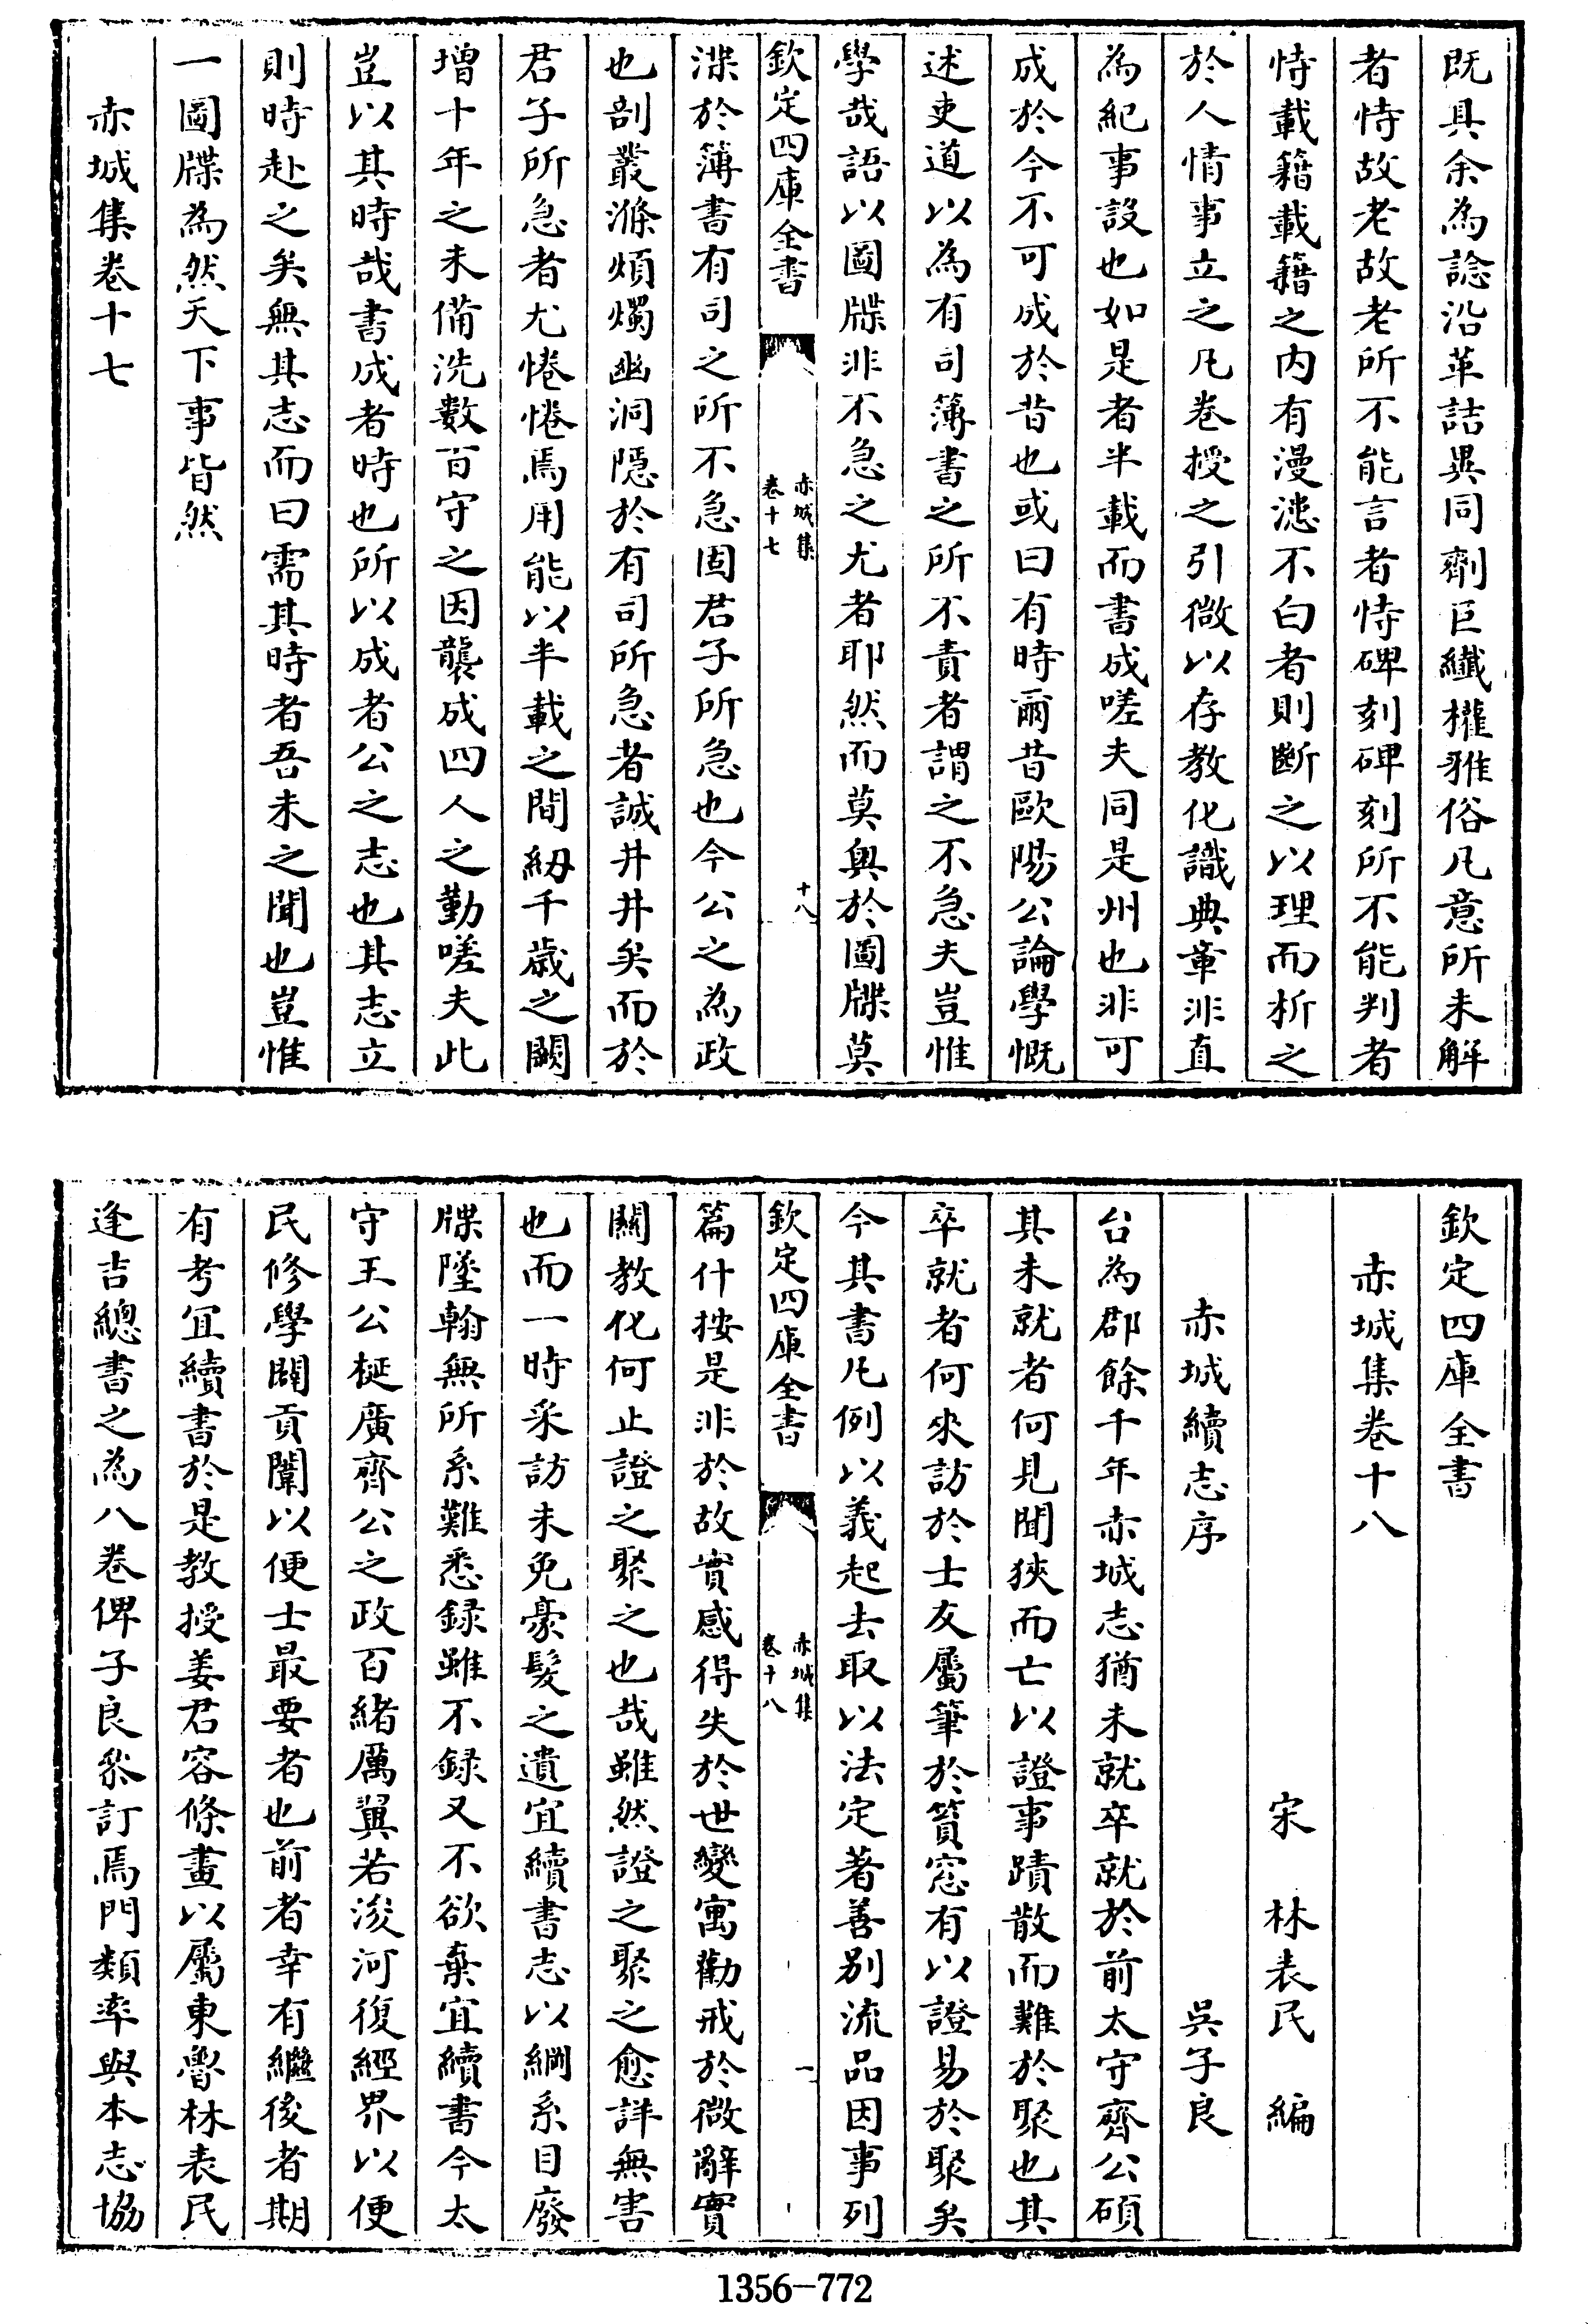 既具余為諗沿革詰異同劑巨纖㩁雅俗凡意所未解
者恃故老故老所不能言者恃碑刻碑刻所不能判者
恃載籍載籍之内有漫漶不白者則斷之以理而析之
於人情事立之凡卷授之引微以存教化識典章非直
為紀事設也如是者半載而書成嗟夫同是州也非可
成於今不可成於昔也或曰有時爾昔歐陽公論學慨
述吏道以為有司簿書之所不責者謂之不急夫豈惟
學哉語以圖牒非不急之尤者耶然而莫輿於圖牒莫
欽定四庫全書
赤城集
卷十七
十八
渫於簿書有司之所不急固君子所急也今公之為政
也剖叢滌煩燭幽洞隱於有司所急者誠井井矣而於
君子所急者尤惓惓焉用能以半載之間紉千歲之闕
增十年之未備洗數百守之因襲成四人之勤嗟夫此
豈以其時哉書成者時也所以成者公之志也其志立
則時赴之矣無其志而曰需其時者吾未之聞也豈惟
一圖牒為然天下事皆然
赤城集卷十七
欽定四庫全書
赤城集卷十八
宋 林表民 編
赤城續志序 吳子良
台為郡餘千年赤城志猶未就卒就於前太守齊公碩
其未就者何見聞狹而亡以證事蹟散而難於聚也其
卒就者何來訪於士友屬筆於篔窓有以證易於聚矣
今其書凡例以義起去取以法定著善别流品因事列
欽定四庫全書
赤城集
卷十八
一
篇什按是非於故實感得失於世變寓勸戒於微辭實
關教化何止證之聚之也哉雖然證之聚之愈詳無害
也而一時采訪未免豪髮之遺宜續書志以綱系目廢
牒墜翰無所系難悉録雖不録又不欲棄宜續書今太
守王公梴廣齊公之政百緒厲翼若浚河復經界以便
民修學闢貢闈以便士最要者也前者幸有繼後者期
有考宜續書於是教授姜君容條畫以屬東魯林表民
逢吉總書之為八卷俾子良叅訂焉門類率與本志協
1356-772